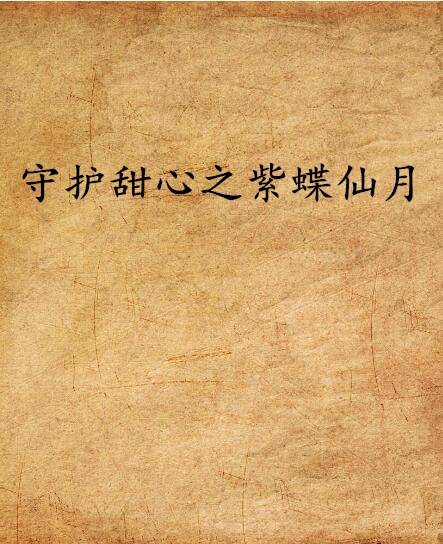 守护甜心之紫蝶仙月